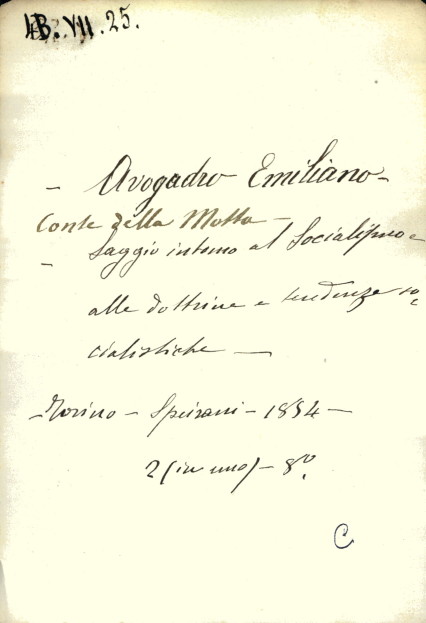 4B.VII.25.
— Avogadro Emiliano —
Conte della Motta —
— Saggio intorno al Socialismo e
alle dottrine e tendenze so=
cialistiche —
— Torino — Speirani — 1854 —
2 (in uno) — 8º.
C